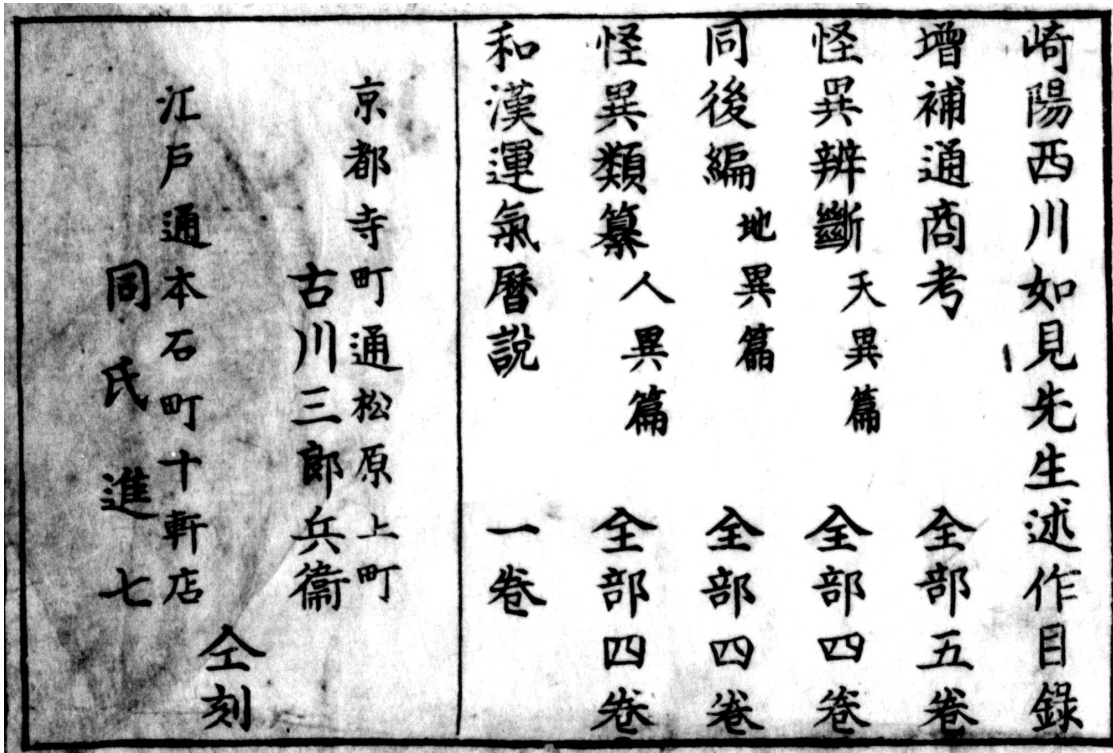 崎陽西川如見先生述作目録
増補通商考 全部五巻
怪異辨斷 天異篇 全部四巻
同後編 地異篇 全部四巻
怪異類纂 人異篇 全部四巻
和漢運氣暦説 一巻
京都寺町通松原上町
古川三郎兵衞
江戸通本石町十軒店
同氏進七
仝刻